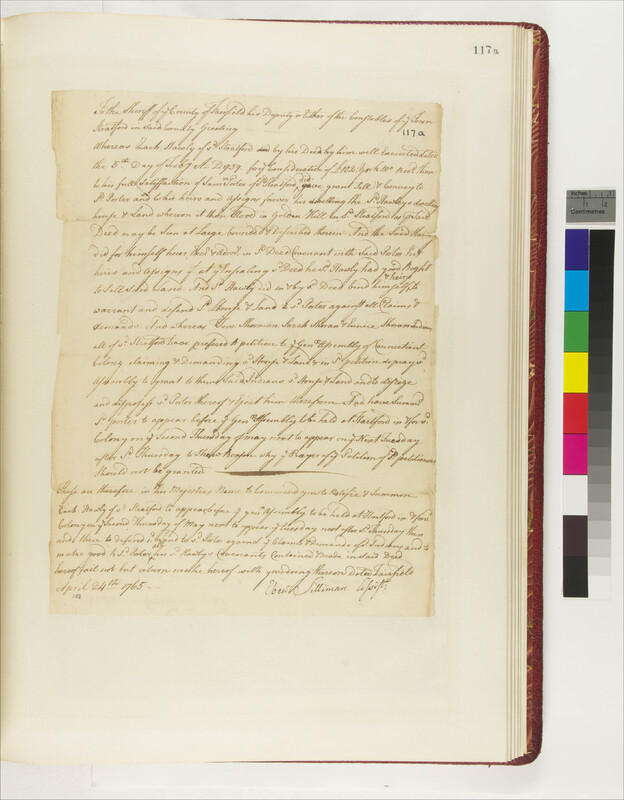 117a
To the Sheriff of ye County of Fairfield his Deputy or Either of the Constables of ye Town
Stratford in Said County Greeting
117a
Whereas Zach Hawly of sd Stratford by his Deed by him well Executed dated
the 5th Day of A. D. 1739. for ye Consideration of
to his full Satisfaction of Sam Porter of sd Stratford, did give grant Sell & Convey to
sd Porter and to his heirs and assigns forever his the sd Hawleys dwelling
house & Land whereon it then Stood in Golden Hill in sd Stratford as per said
Deed may be Seen at Large bounded & described therein And the Said Hawly
did for himself heirs Exrs & Admrs in sd Deed Covenant with Said Porter his
heirs and assigns yt at ye Ensealing sd Deed he sd Hawly had good Right
to Sell sd Land. And sd Hawly did in & by sd Deed bind himself & heirs to
warrant and defend sd House & Land to sd Porter against all Claims &
demands. And whereas Tom Sherman Sarah Shoran & Eunice Shoran Indians
all of sd Stratford have prefered a petition to ye Genl Assembly of Connecticut
Colony claiming & Demanding sd House & Land & in sd petition do pray sd
Assembly to grant to them Said Indians sd House & Land and to
and disposess sd Porter thereof & Eject him therefrom And have Sumond
sd Porter to appear before ye Genl Assembly to be held at Hartford in & for sd
Colony on ye Second Thursday of may next to appear on ye Next Tuesday
after sd Thursday to Shew Reason why ye Prayer of ye Petition of sd petitioners
Should not be granted
These are therefore in his Majesties Name to Command you to Notifie & Summon
Zach. Hawly of sd Stratford to appear before ye genl Assembly to be held at Hartford in & for sd
Colony on ye Second Thursday of May next to appear ye tuesday next after sd thursday then
and there to Defend sd Land to sd Porter against ye Claims & Demands of sd Indians and to
make good to sd Porter his sd Hawlys Covenants Contained & made in said Deed
hereof fail not but return make hereof with your doings thereon Dated Fairfield
April 24th 1765
Ebenr Silliman Assist
Inches
1
2
Centimetres